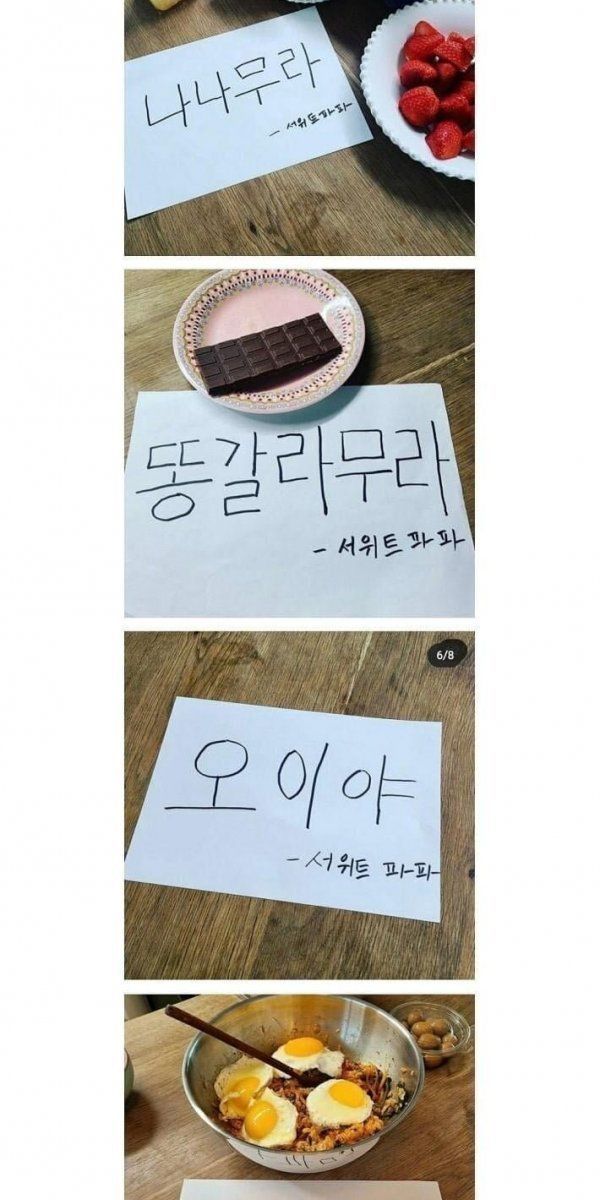 나나무라
- 서위트파파
똥갈라무라
- 서위트 파파
6/8
오이야
- 서위트 파파